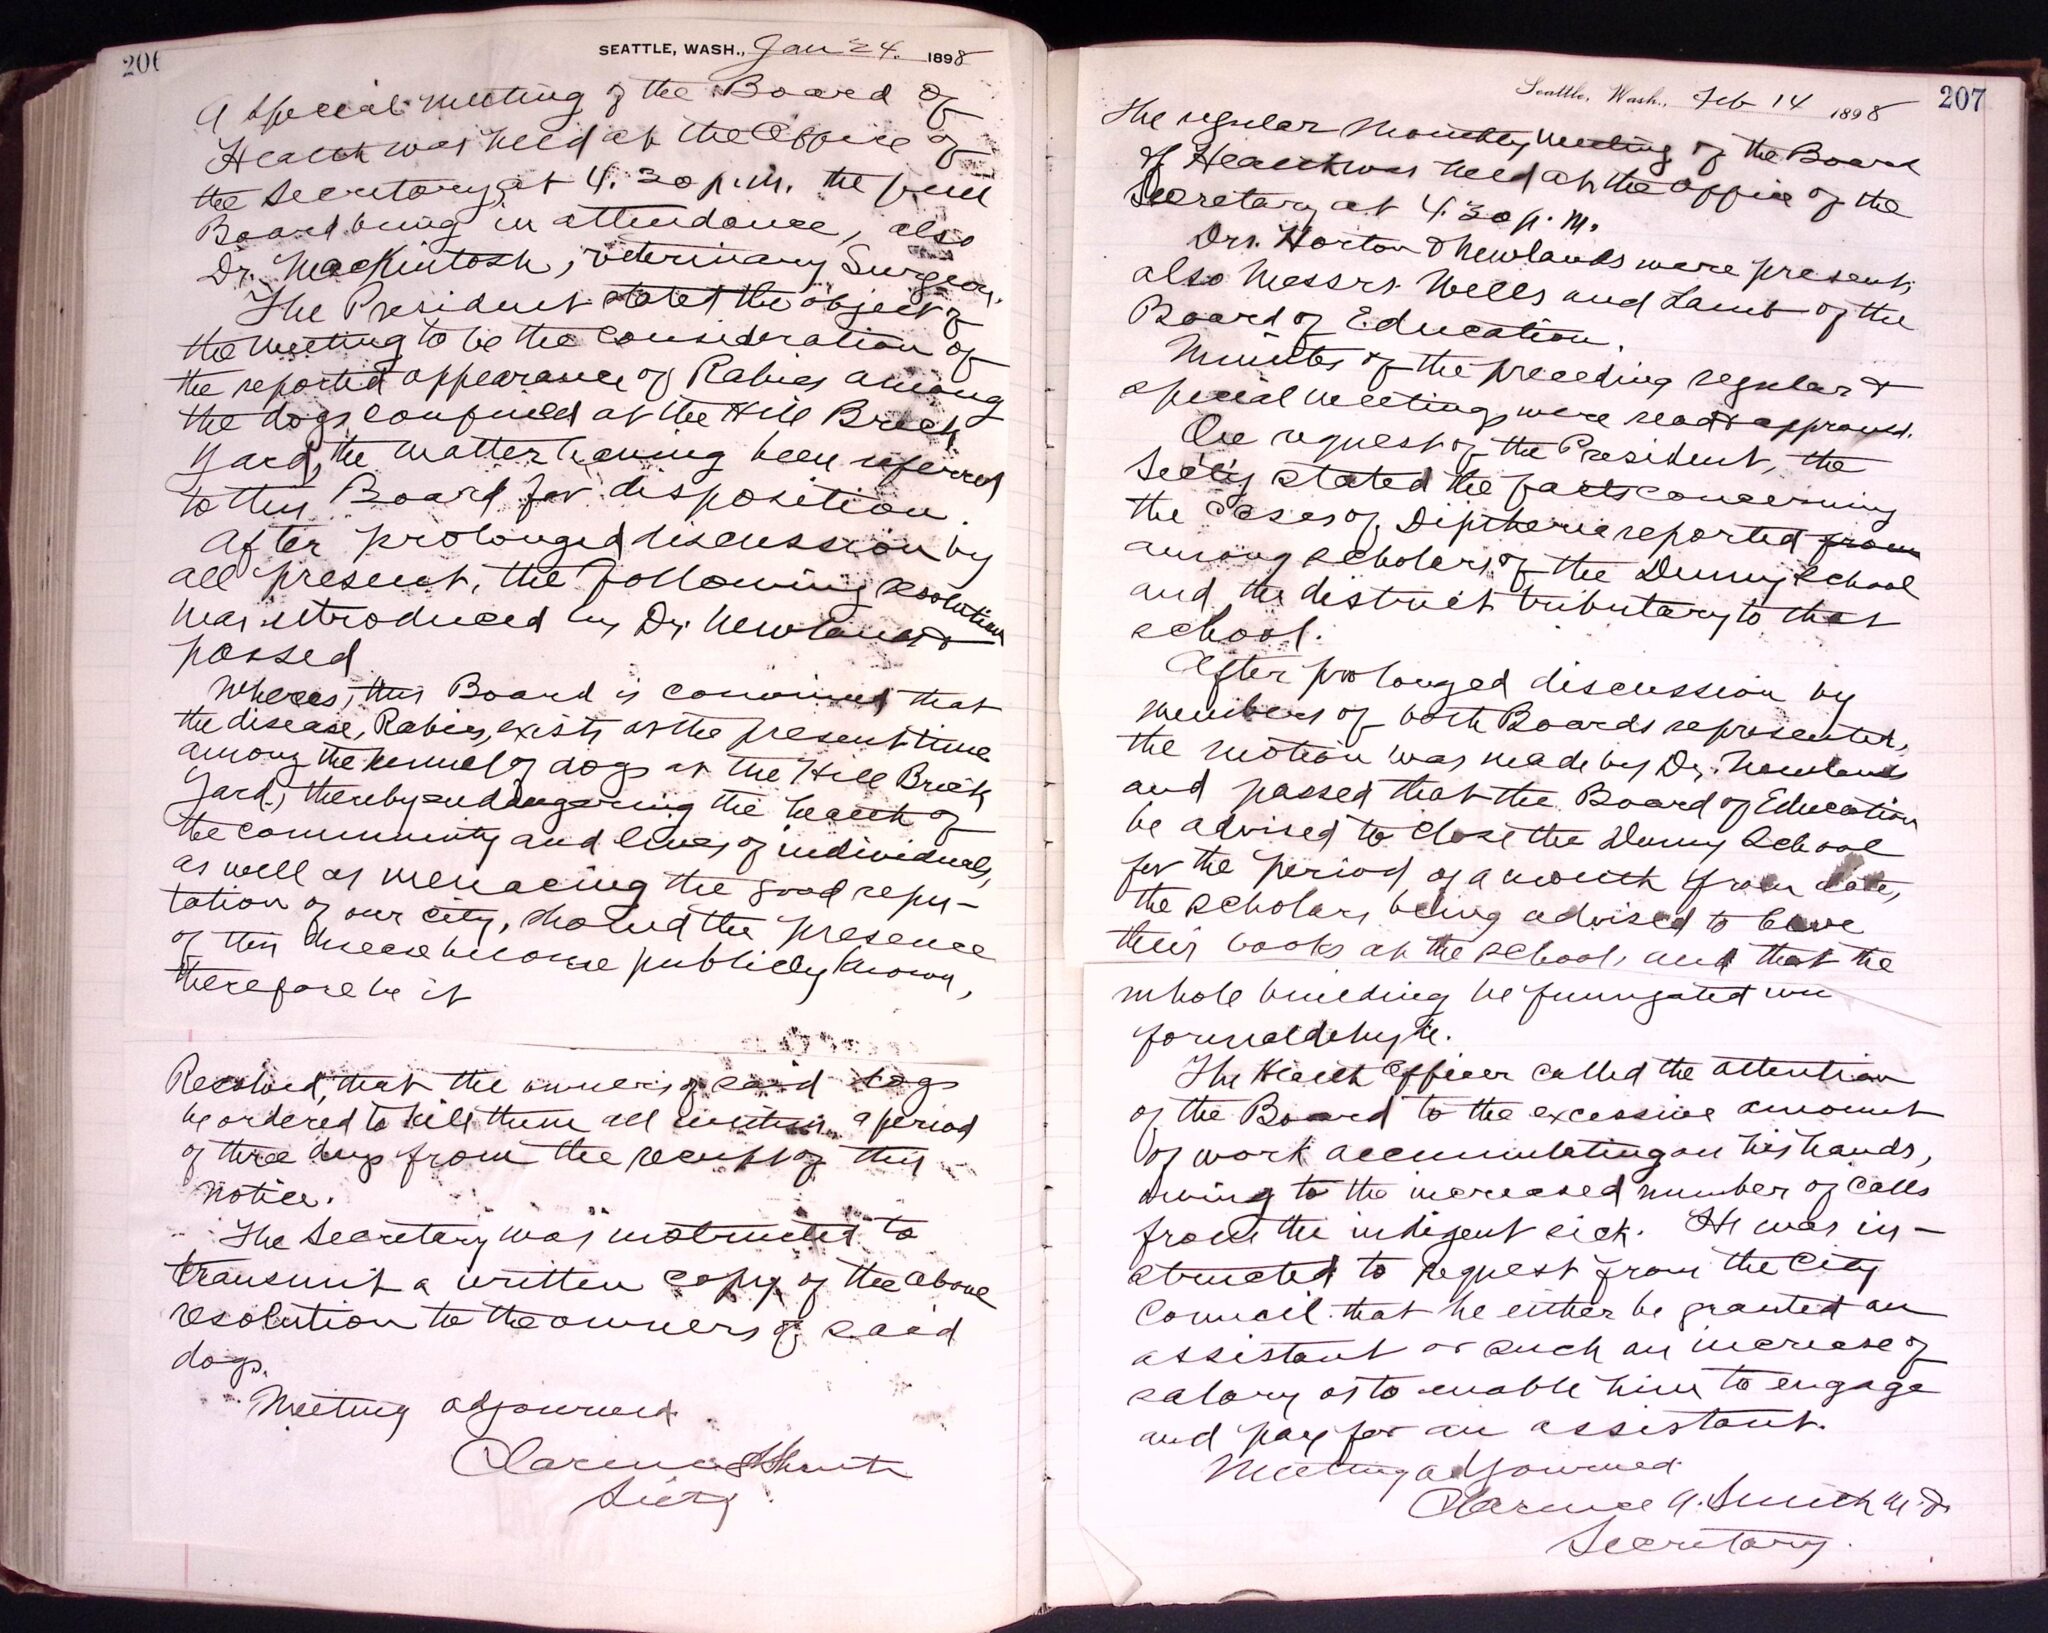 206
SEATTLE, WASH., Jan 24. 1898
A special meeting of the Board of
Health was held at the office of
the Secretary, at 4.30 p.m. the full
Board being in attendance, also
Dr. MacKintosh, veterinary Surgeon.
The President stated the object of
the meeting to be the consideration of
the reported appearance of Rabies among
the dogs confined at the Hill Brick
Yard, the matter having been referred
to this Board for disposition.
After prolonged discussion by
all present, the following resolution
was introduced by Dr. Newlands &
passed
Wheras, this Board is convinced that
the disease, Rabies, exists at the present time
among the kennel of dogs at the Hill Brick
Yard, thereby endangering the health of
the community and lives of individuals,
as well as menacing the good repu-
tation of our city, should the presence
of this disease become publicly known,
therefore be it
Resolved, that the owners of said dogs
be ordered to kill them all within a period
of three days from the receipt of this
notice.
The Secretary was instructed to
transmit a written copy of the above
resolution to the owners of said
dogs.
Meeting adjourned
Clarence A Smith
Secty.
Seattle, Wash., Feb 14 1898 207
The regular monthly meeting of the Board
of Health was held at the office of the
Secretary at 4.30 p.m.
Drs. Horton & Newlands were present,
also Messrs. Wells and Lamb of the
Board of Education.
Minutes of the preceding regular &
special meetings were read & approved.
On request of the President, the
Sec'ty stated the facts concerning
the cases of Diptheria reported from
among scholars of the Denny School
and the district tributary to that
school.
After prolonged discussion by
members of both Boards represented,
the motion was made by Dr. Newlands
and passed that the Board of Education
be advised to close the Denny School
for the period of a month from date,
the scholars being advised to leave
their books at the school, and that the
whole building be fumigated with
formaldehyde.
The Health Officer called the attention
of the Board to the excessive amount
of work accumulating on his hands,
owing to the increased number of calls
from the indigent sick. He was in-
structed to request from the City
Council that he either be granted an
assistant or such an increase of
salary as to enable him to engage
and pay for an assistant.
Meeting adjourned
Clarence A. Smith M.D.
Secretary.